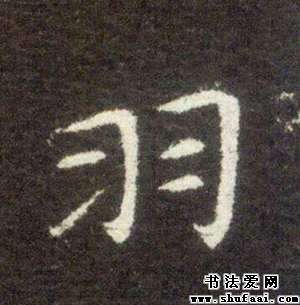 羽
书法爱网
www.shufaai.com